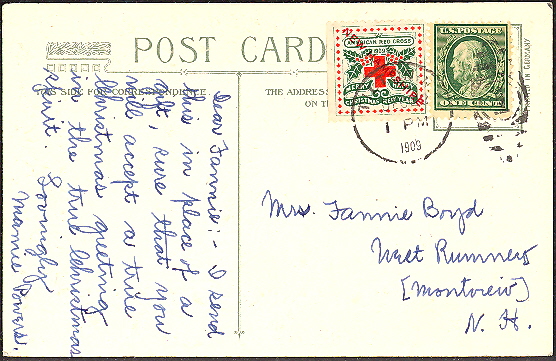 POST CARD
THIS SIDE FOR CORRESPONDENCE
THE ADDRESS
ON TH
IN GERMANY
AMERICAN RED CROSS
1909
MERRY
CHRISTMAS
HAPPY
NEW YEAR
U.S. POSTAGE
ONE CENT
1 PM
1909
Dear Fannie:- I send
this in place of a
gift, sure that you
will accept a true
Christmas greeting
in the true Christmas
spirit. Lovingly
Mamie Powers.
Mrs. Fannie Boyd
West Rumney
[Montview]
N. H.